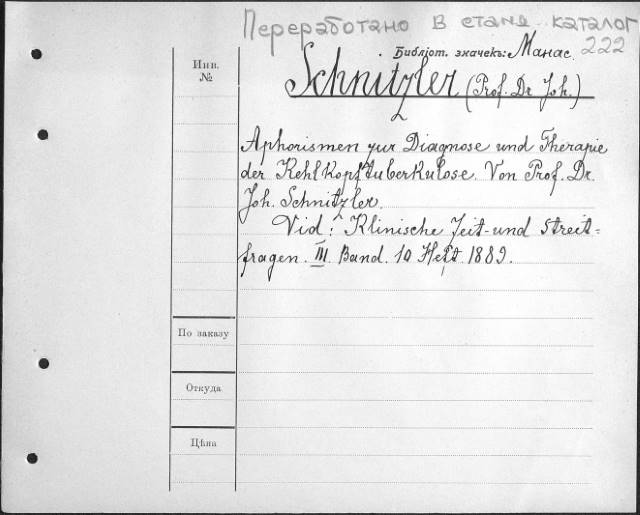 Переработано в станд. каталог
Библіот. значекъ: Манас. 222
Инв.
№
Schnitzler (Prof. Dr Joh.)
Aphorismen zur Diagnose und Therapie
der Kehlkopftuberkulose. Von Prof. Dr.
Joh. Schnitzler.
Vid: Klinische Zeit- und Streit=
fragen. III. Band. 10 Heft. 1889.
По заказу
Откуда
Цѣна